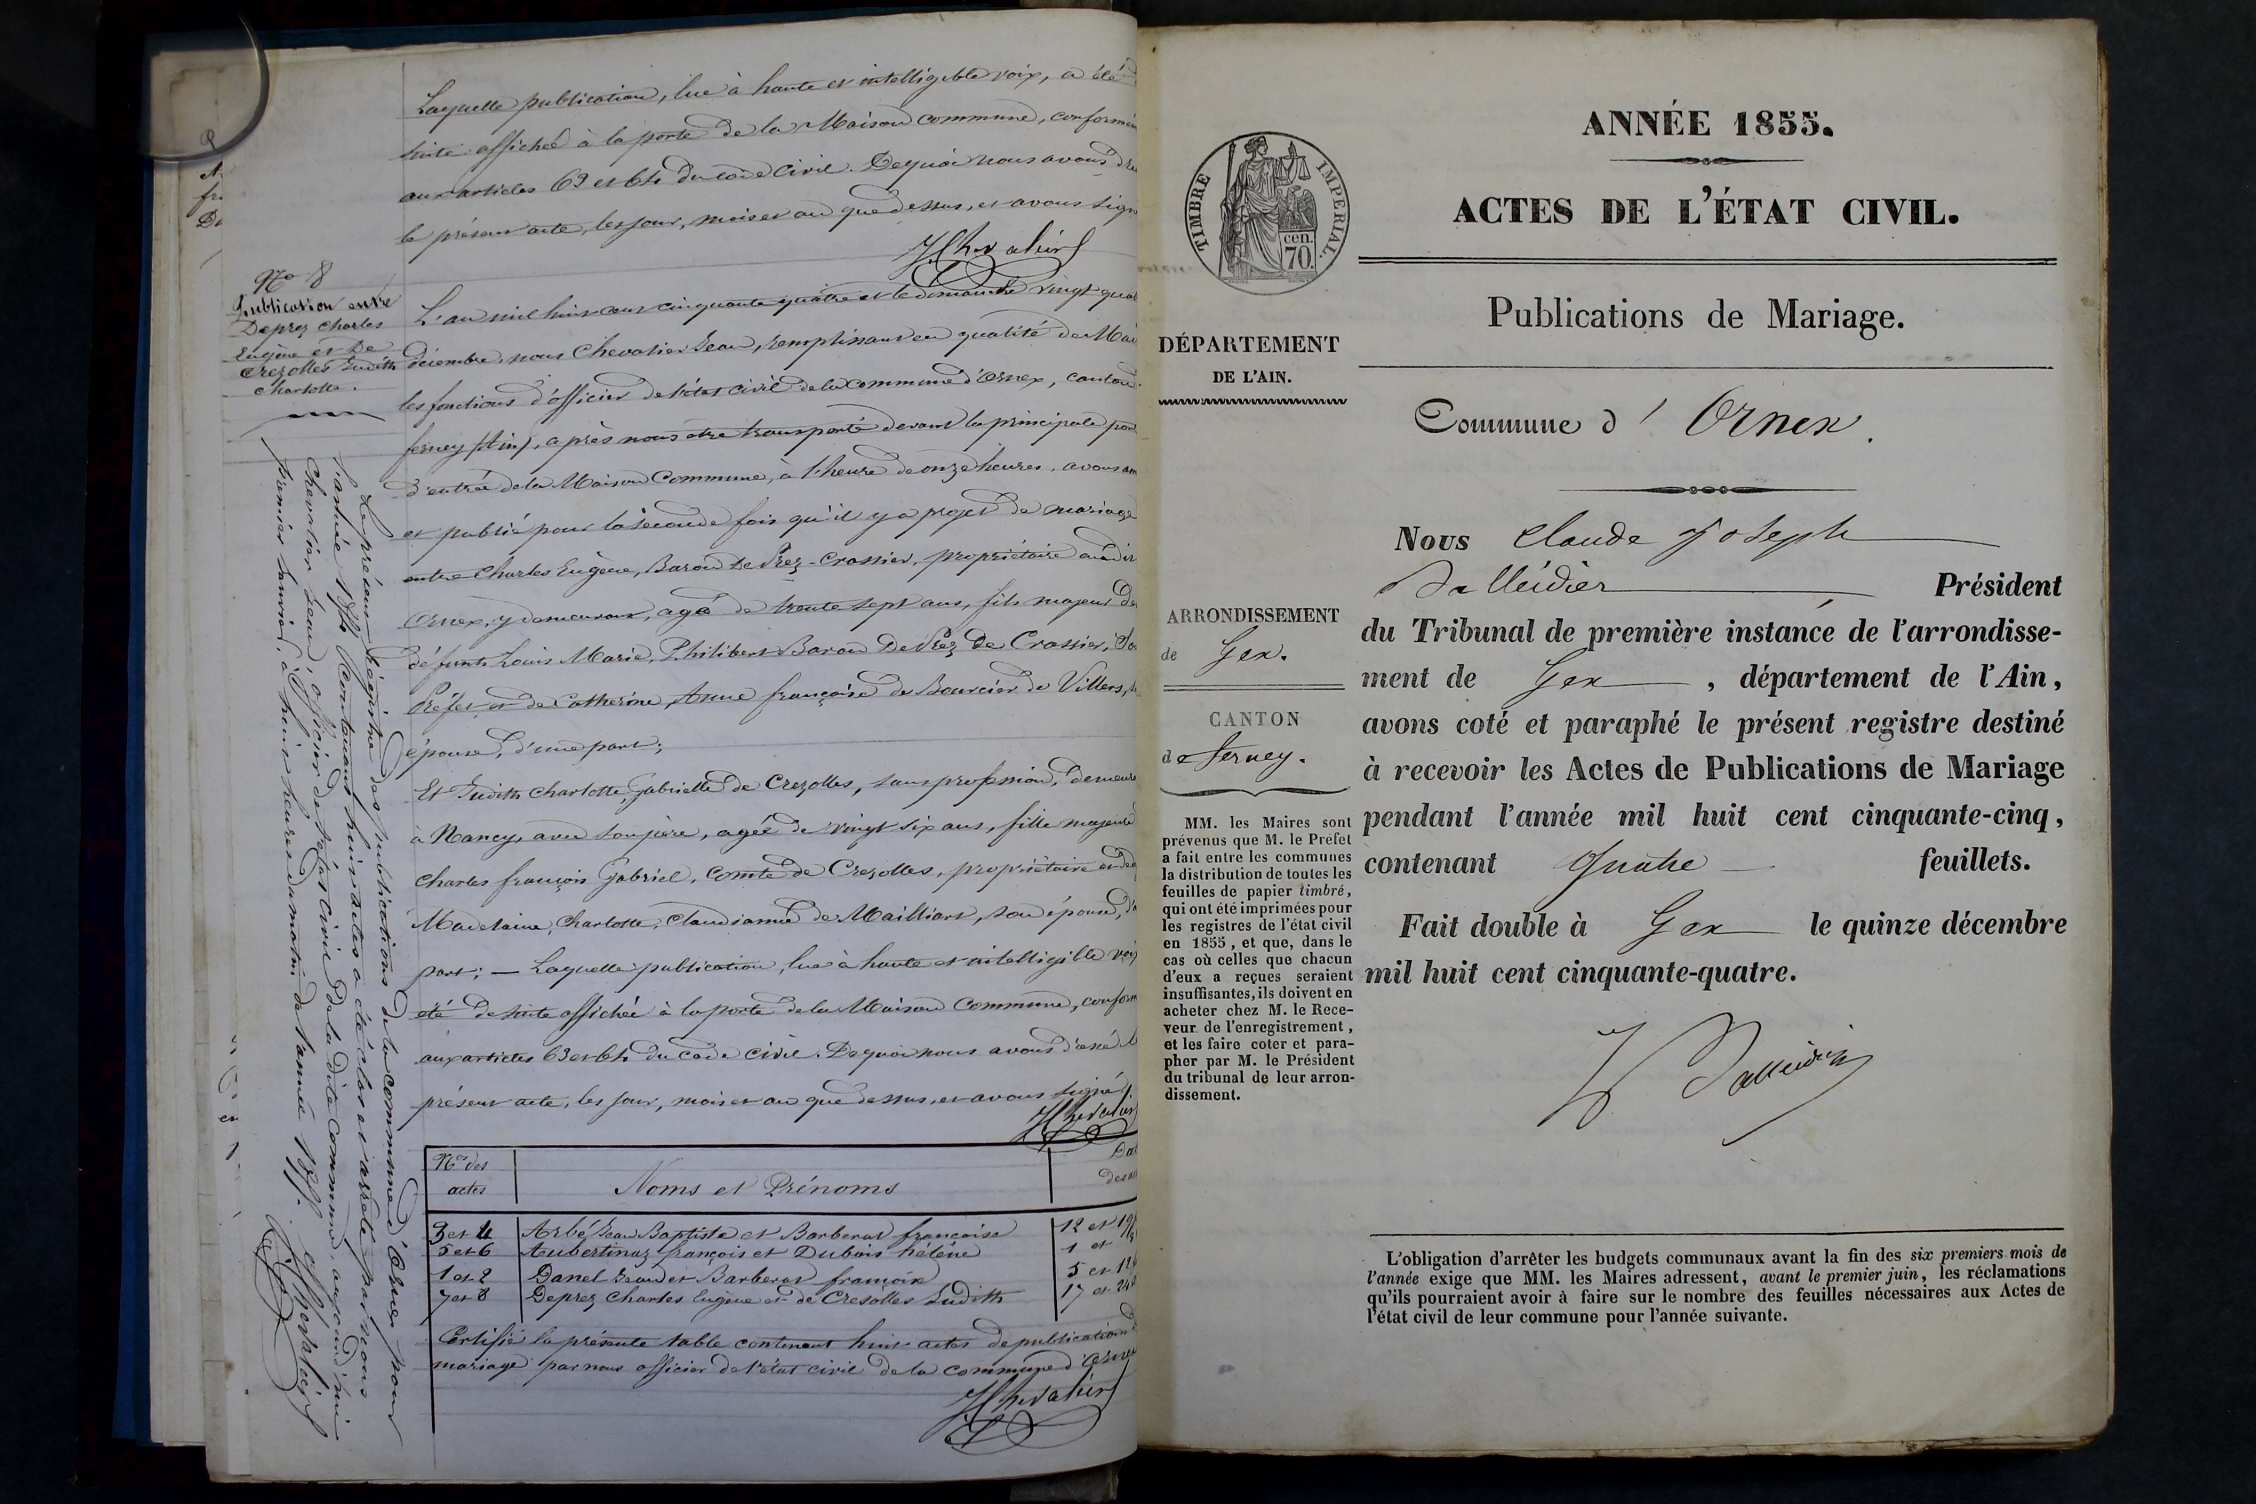 Laquelle publication, lue à haute et intelligible voix, a été
suite affichée à la porte de la Maison commune, conformém
aux articles 63 et 64 du code Civil. De quoi nous avons
le présent acte, les jour, mois et an que dessus, et avons sign
J. Chevalier
N° 8
Publication entre
Deprez Charles
Eugène et De
Crezolles Judith
Charlotte.
L'an mil huit cent cinquante quatre et le dimanche vingt quat
décembre, nous Chevalier Jean, remplissant en qualité de Mai
les fonctions d'officier de l'état civil de la commune d'Ornex, canton
ferney (Ain), après nous être transporté devant la principale port
d'entrée de la Maison Commune, à l'heure de onze heures, avons ann
et publié pour la seconde fois qu'il y a projet de mariage
entre Charles Eugène, Baron De Prez-Crassier, propriétaire audit
Ornex, y demeurant, agé de trente sept ans, fils majeur de
défunts Louis Marie, Philibert Baron De Prez De Crassier,
Préfet et de Catherine, Anne françoise de Bourcier de Villers,
épouse, d'une part;
Et Judith Charlotte, Gabrielle de Crezolles, sans profession, demeura
à Nancy, avec son père, agée de vingt six ans, fille majeure
Charles françois Gabriel, comte de Crezolles, propriétaire
Madelaine, Charlotte, Claudianne de Mailliart, son épouse,
part; — Laquelle publication, lue à haute et intelligible voix
été de suite affichée à la porte de la Maison Commune, conform
aux articles 63 et 64 du code civil. De quoi nous avons dressé
présent acte, les jour, mois et an que dessus, et avons signé.
J. Chevalier
Le présent Régistre des publications de la commune d'Ornex pour
l'année 1854 contenant huit actes a été clos et arrêté par nous
Chevalier Jean, officier de l'état civil de la dite commune, aujourd'hui
premier janvier, à huit heures du matin de l'année 1855. J. Chevalier
Nos des
actes
Noms et Prénoms
3 et 4 Arbé Jean Baptiste et Barberat françoise 12 et 19
5 et 6 Aubertinaz françois et Dubois hélène 1 et
1 et 2 Danel Jean et Barberat françoise 5 et 12
7 et 8 Deprez Charles Eugène et de Cresolles Judith 17 et 24
Certifié la présente table contenant huit actes de publication
mariage par nous officier de l'état civil de la commune d'Ornex
J. Chevalier
ANNÉE 1855.
ACTES DE L'ÉTAT CIVIL.
TIMBRE IMPERIAL.
cen.
70.
Publications de Mariage.
DÉPARTEMENT
DE L'AIN.
Commune d' Ornex.
Nous Claude Joseph
Dalleidier Président
du Tribunal de première instance de l'arrondisse-
ment de Gex, département de l'Ain,
avons coté et paraphé le présent registre destiné
à recevoir les Actes de Publications de Mariage
pendant l'année mil huit cent cinquante-cinq,
contenant Quatre feuillets.
Fait double à Gex le quinze décembre
mil huit cent cinquante-quatre.
Dalleidier
ARRONDISSEMENT
de Gex.
CANTON
de Ferney.
MM. les Maires sont
prévenus que M. le Préfet
a fait entre les communes
la distribution de toutes les
feuilles de papier timbré,
qui ont été imprimées pour
les registres de l'état civil
en 1855, et que, dans le
cas où celles que chacun
d'eux a reçues seraient
insuffisantes, ils doivent en
acheter chez M. le Rece-
veur de l'enregistrement,
et les faire coter et para-
pher par M. le Président
du tribunal de leur arron-
dissement.
L'obligation d'arrêter les budgets communaux avant la fin des six premiers mois de
l'année exige que MM. les Maires adressent, avant le premier juin, les réclamations
qu'ils pourraient avoir à faire sur le nombre des feuilles nécessaires aux Actes de
l'état civil de leur commune pour l'année suivante.